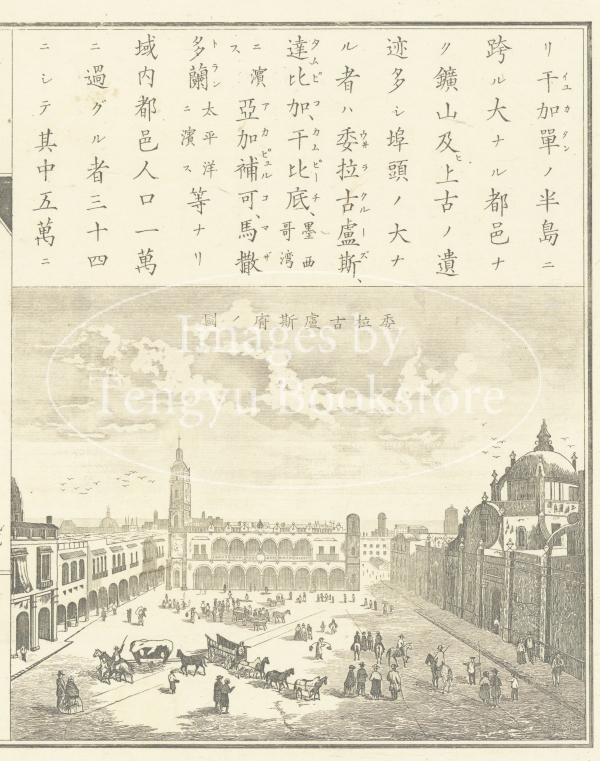 リ干加單ノ半島ニ
跨ル大ナル都邑ナ
ク鑛山及ヒ上古ノ遺
迹多シ埠頭ノ大ナ
ル者ハ委拉古盧斯、
達比加、干比底、墨西哥湾
ニ濱ス亞加補可、馬撒
多蘭太平洋ニ濱ス等ナリ
域内都邑人口一萬
ニ過グル者三十四
ニシテ其中五萬ニ
委拉古盧斯府ノ圖
Images by
Tengyu Bookstore